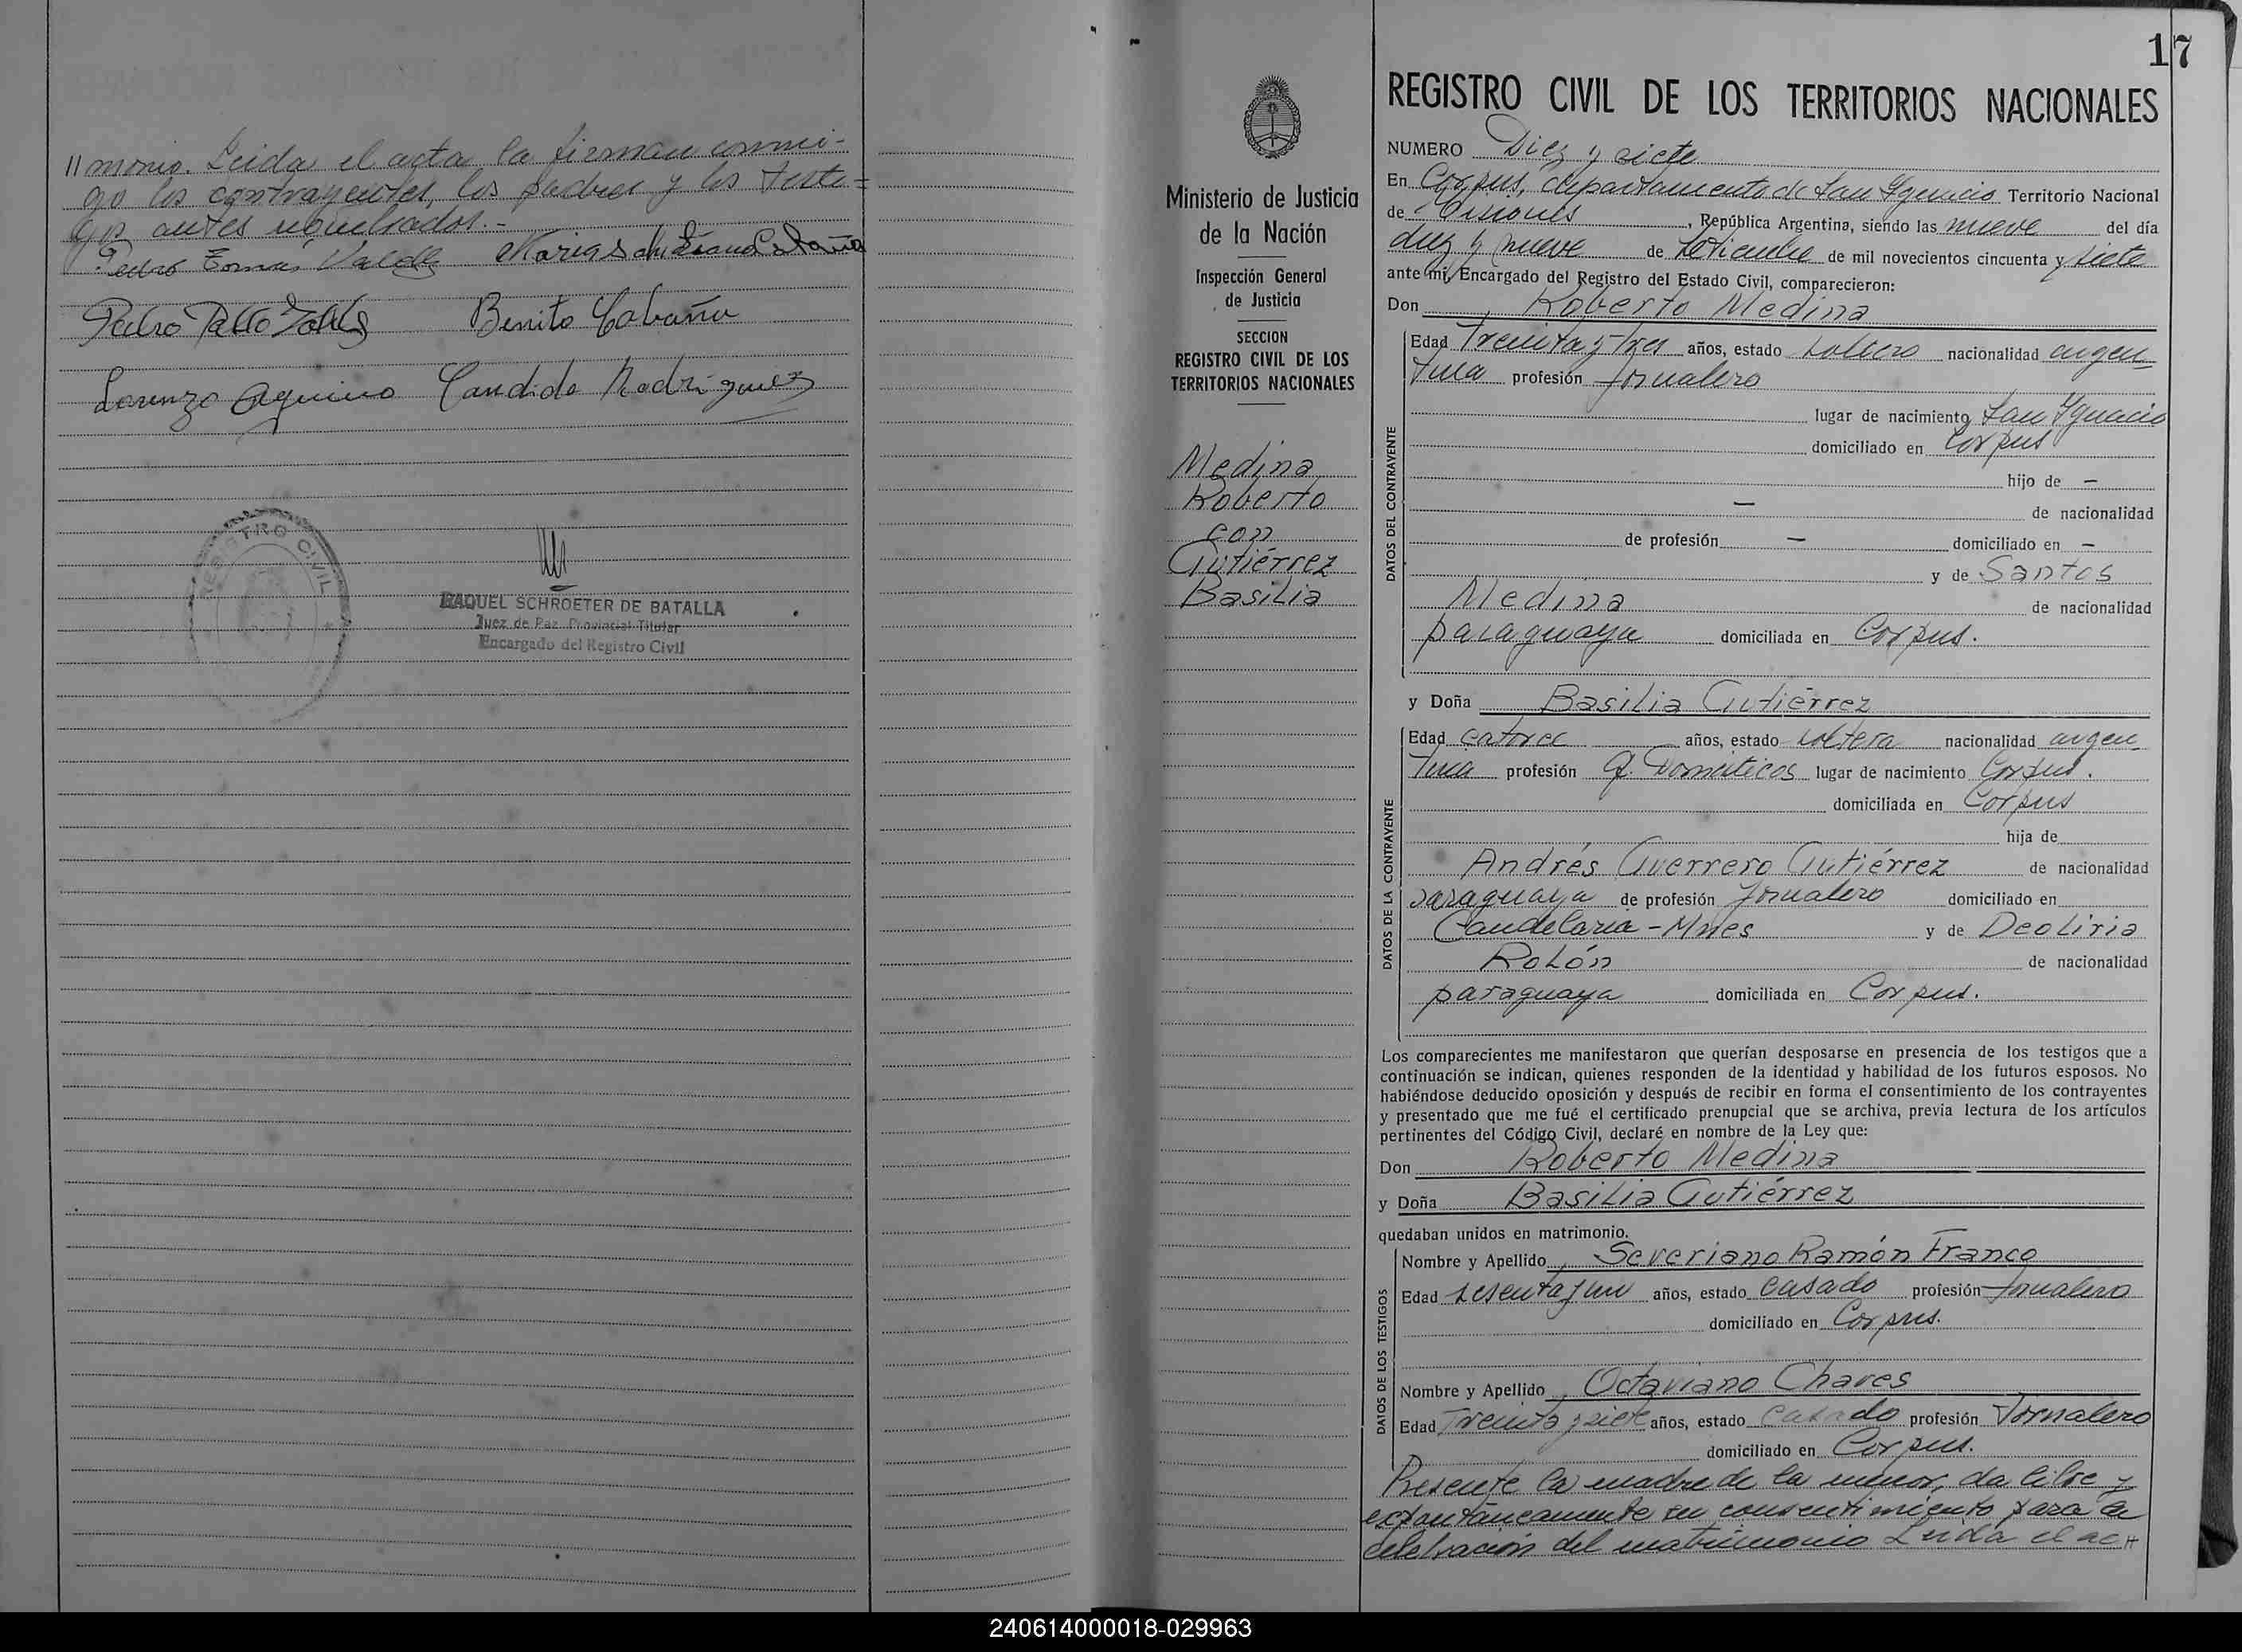 // monio. Leida el acta la firman conmi-
go los contrayentes, los padres y los testi=
gos antes nombrados.-
Pedro Tomás Valdez
Benito Cabaña
Lorenzo Aquino Candido Rodriguez
REGISTRO CIVIL
RAQUEL SCHROETER DE BATALLA
Juez de Paz Provincial Titular
Encargado del Registro Civil
Ministerio de Justicia
de la Nación
Inspección General
de Justicia
SECCION
REGISTRO CIVIL DE LOS
TERRITORIOS NACIONALES
Medina
Roberto
con
Gutiérrez
Basilia
17
REGISTRO CIVIL DE LOS TERRITORIOS NACIONALES
NUMERO Diez y siete
En Corpus, departamento de San Ignacio Territorio Nacional
de Misiones, República Argentina, siendo las nueve del día
diez y nueve de Setiembre de mil novecientos cincuenta y siete
ante mí, Encargado del Registro del Estado Civil, comparecieron:
Don Roberto Medina
DATOS DEL CONTRAYENTE
Edad Treinta y tres años, estado soltero nacionalidad argen
tina profesión Jornalero
lugar de nacimiento San Ignacio
domiciliado en Corpus
hijo de —
— de nacionalidad
de profesión — domiciliado en —
y de Santos
Medina de nacionalidad
paraguaya domiciliada en Corpus.
y Doña Basilia Gutiérrez
DATOS DE LA CONTRAYENTE
Edad catorce años, estado soltera nacionalidad argen
tina profesión Q. Domésticos lugar de nacimiento Corpus.
domiciliada en Corpus
hija de
Andrés Guerrero Gutiérrez de nacionalidad
paraguaya de profesión Jornalero domiciliado en
Candelaria - Mnes y de Deoliria
Rolón de nacionalidad
paraguaya domiciliada en Corpus.
Los comparecientes me manifestaron que querían desposarse en presencia de los testigos que a
continuación se indican, quienes responden de la identidad y habilidad de los futuros esposos. No
habiéndose deducido oposición y después de recibir en forma el consentimiento de los contrayentes
y presentado que me fué el certificado prenupcial que se archiva, previa lectura de los artículos
pertinentes del Código Civil, declaré en nombre de la Ley que:
Don Roberto Medina
y Doña Basilia Gutiérrez
quedaban unidos en matrimonio.
DATOS DE LOS TESTIGOS
Nombre y Apellido Severiano Ramón Franco
Edad sesenta y un años, estado casado profesión Jornalero
domiciliado en Corpus.
Nombre y Apellido Octaviano Chaves
Edad Treinta y siete años, estado casado profesión Jornalero
domiciliado en Corpus.
Presente la madre de la menor, da libre y
expontáneamente su consentimiento para la
celebración del matrimonio Leida el ac //
240614000018-029963